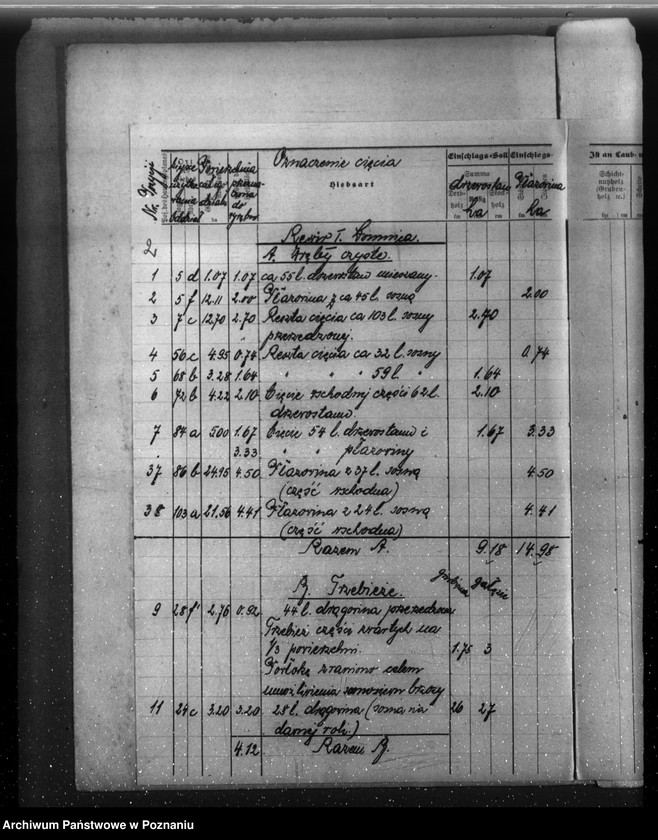 Oznaczenie cięcia
Hiebsart
Einschlags-Soll Einschlags-
Ist an Laub- u
Nr. Pozycji
Powierzchnia
drzewostan Płazowina
ha ha
Summa
Derb-holz
Schicht-nutzholz (Gruben-holz rc.)
2
Rewir I. Łomnica.
A. Zręby czyste.
1 5 d 1.07 1.07 ca 55 l. drzewostan mieszany. 1.07
2 5 f 12.11 2.00 Płazowina z ca 45 l. sosną 2.00
3 7 c 12,70 2.70 Reszta cięcia ca 103 l. sosny 2.70
przerzedzonej.
4 56 c 4.95 0.74 Reszta cięcia ca 32 l. sosny 0.74
5 68 b 3.28 1.64 " " " 59 l. " 1.64
6 72 b 4.22 2.10 Cięcie wschodniej części 62 l. 2.10
drzewostanu.
7 84 a 5.00 1.67 Cięcie 54 l. drzewostanu i 1.67 3.33
3.33 " " płazowiny
37 86 b 24.95 4.50 Płazowina z 37 l. sosną 4.50
(część wschodnia)
38 103 a 21.56 4.41 Płazowina z 24 l. sosną 4.41
(część wschodnia)
Razem A. 9.18 14.98
B. Trzebieże. grubizna gałęzie
9 28 f 2.76 0.92 44 l. drągowina przerzedzona
Trzebież części zwartych na
1/3 powierzchni. 1.75 3
celem
brzozy
11 24 c 3.20 3.20 28 l. drągowina (sosna na 26 27
dawnej roli.)
4.12 Razem B.
Archiwum Państwowe w Poznaniu